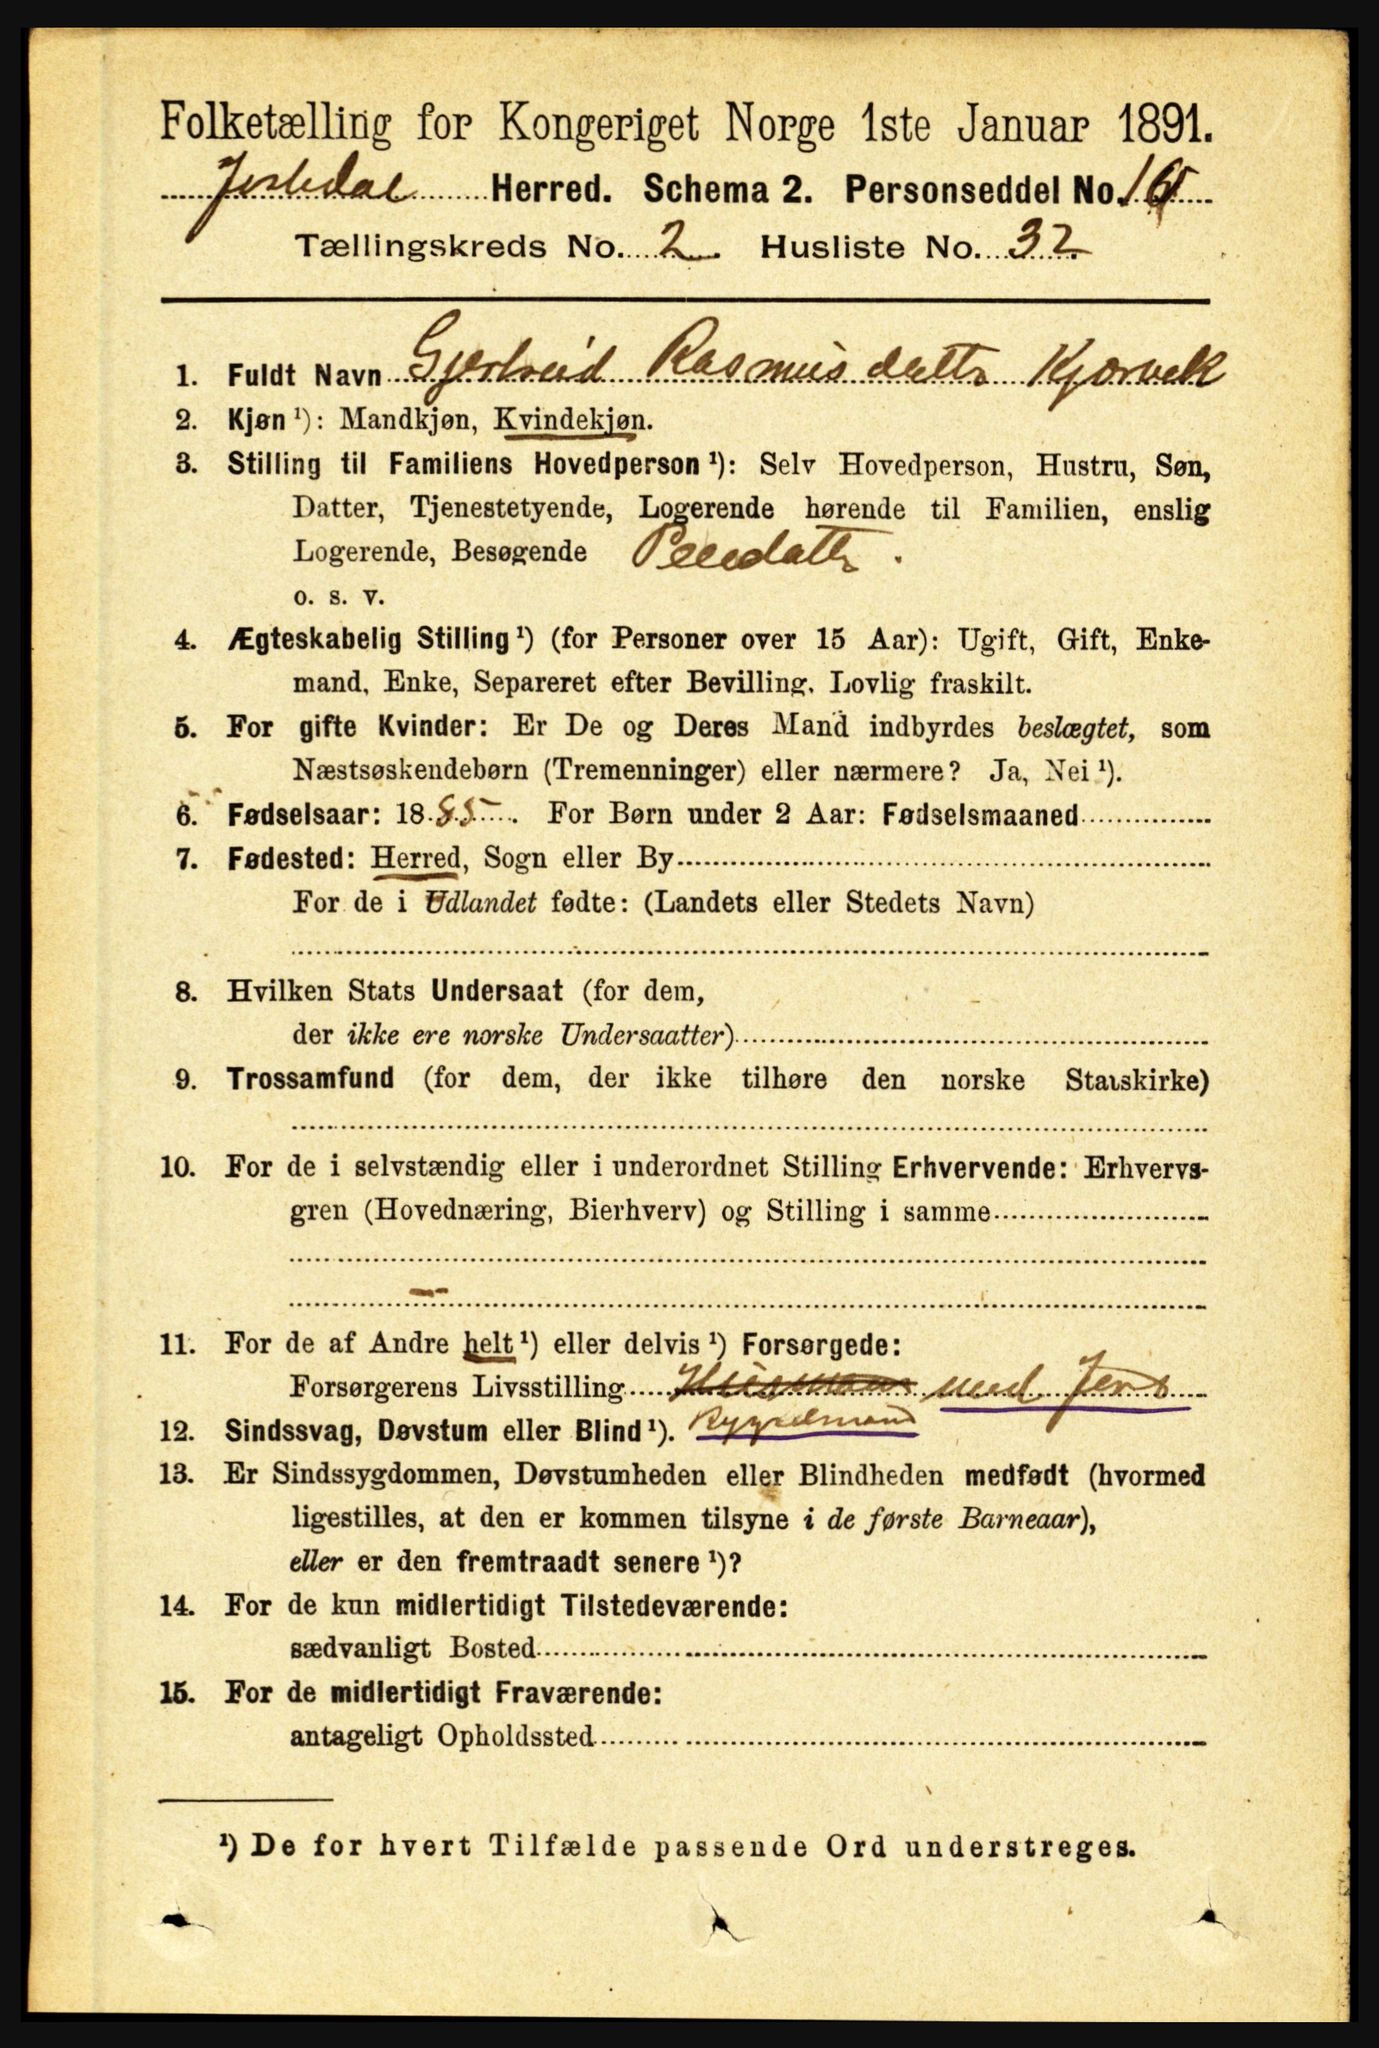 Folketælling for Kongeriget Norge 1ste Januar 1891.
Jostedal Herred. Schema 2. Personseddel No.
Tællingskreds No. 2. Husliste No. 32.
1. Fuldt Navn Gjertrud Rasmusdatter Kjærvik
2. Kjøn ¹): Mandkjøn, Kvindekjøn.
3. Stilling til Familiens Hovedperson ¹): Selv Hovedperson, Hustru, Søn,
Datter, Tjenestetyende, Logerende hørende til Familien, enslig
Logerende, Besøgende Pleiedatter.
o. s. v.
4. Ægteskabelig Stilling ¹) (for Personer over 15 Aar): Ugift, Gift, Enke-
mand, Enke, Separeret efter Bevilling. Lovlig fraskilt.
5. For gifte Kvinder: Er De og Deres Mand indbyrdes beslægtet, som
Næstsøskendebørn (Tremenninger) eller nærmere? Ja, Nei ¹).
6. Fødselsaar: 1885. For Børn under 2 Aar: Fødselsmaaned
7. Fødested: Herred, Sogn eller By
For de i Udlandet fødte: (Landets eller Stedets Navn)
8. Hvilken Stats Undersaat (for dem,
der ikke ere norske Undersaatter)
9. Trossamfund (for dem, der ikke tilhøre den norske Statskirke)
10. For de i selvstændig eller i underordnet Stilling Erhvervende: Erhvervs-
gren (Hovednæring, Bierhverv) og Stilling i samme
11. For de af Andre helt ¹) eller delvis ¹) Forsørgede:
Forsørgerens Livsstilling Husmand med Jord
12. Sindssvag, Døvstum eller Blind ¹). Bygselmand
13. Er Sindssygdommen, Døvstumheden eller Blindheden medfødt (hvormed
ligestilles, at den er kommen tilsyne i de første Barneaar),
eller er den fremtraadt senere ¹)?
14. For de kun midlertidigt Tilstedeværende:
sædvanligt Bosted
15. For de midlertidigt Fraværende:
antageligt Opholdssted
¹) De for hvert Tilfælde passende Ord understreges.